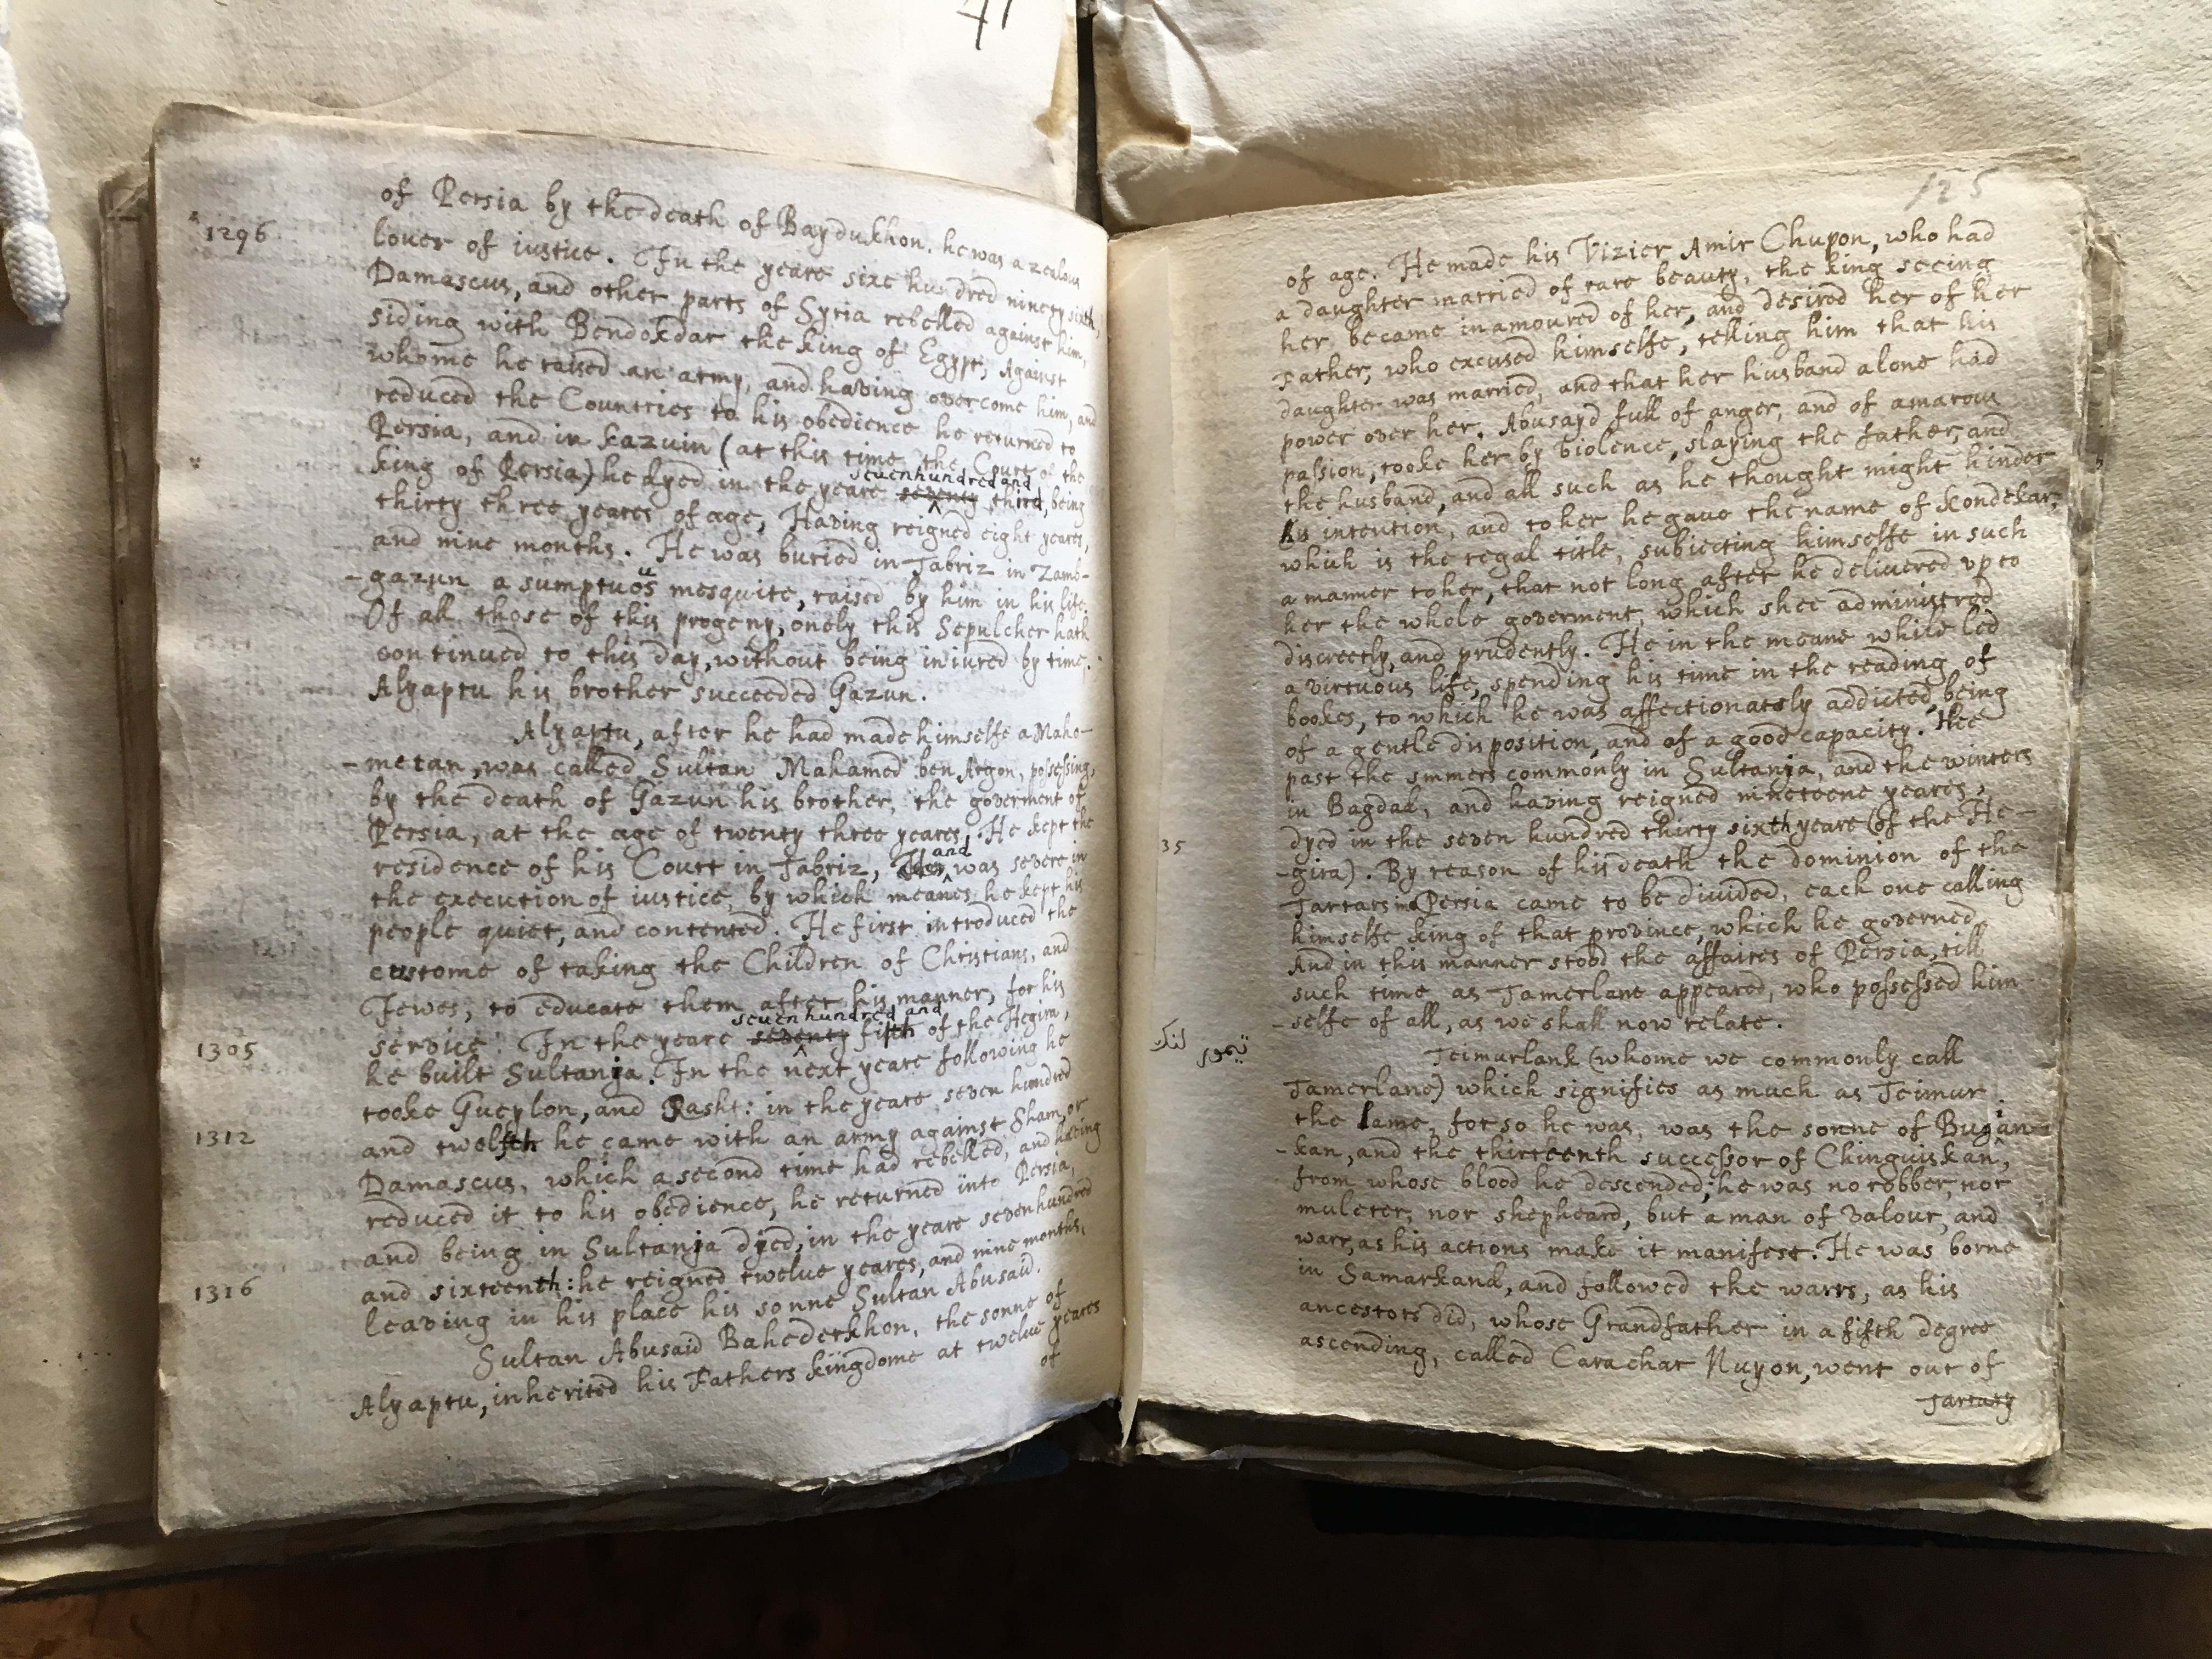 of Persia by the death of Baydukhon. he was a zealous
1296
lover of iustice. In the yeare sixe hundred ninety sixth,
Damascus, and other parts of Syria rebelled against him,
siding with Bendokdar the king of Egypt, Against
whome he raised an army, and having overcome him, and
reduced the Countries to his obedience he returned to
Persia, and in Kazuin (at this time the Court of the
king of Persia) he dyed in the yeare seventy seven hundred and third, being
thirty three yeares of age, Having reigned eight yeares,
and nine months. He was buried in Tabriz in Zamb-
-gazun a sumptuos mesquite, raised by him in his life.
Of all those of this progeny, onely this Sepulcher hath
continued to this day, without being iniured by time.
Alyaptu his brother succeeded Gazun.
Alyaptu, after he had made himselfe a Maho-
-metan, was called Sultan Mahamed ben Argon, possessing,
by the death of Gazun his brother, the goverment of
Persia, at the age of twenty three yeares. He kept the
residence of his Court in Tabriz, and was severe in
the execution of iustice, by which meanes he kept his
people quiet, and contented. He first introduced the
custome of taking the Children of Christians, and
Jewes, to educate them after his manner, for his
service. In the yeare seventy seven hundred and fifth of the Hegira,
1305
he built Sultanja. In the next yeare following he
tooke Gueylon, and Rasht: in the yeare seven hundred
1312
and twelfth he came with an army against Sham, or
Damascus, which a second time had rebelled, and having
reduced it to his obedience, he returned into Persia,
and being in Sultanja dyed, in the yeare seven hundred
1316
and sixteenth: he reigned twelve yeares, and nine months,
leaving in his place his sonne Sultan Abusaid.
Sultan Abusaid Bahederkhon, the sonne of
Alyaptu, inherited his Fathers kingdome at twelve yeares
of
125
of age. He made his Vizier Amir Chupon, who had
a daughter married of rare beauty, the king seeing
her became inamoured of her, and desired her of her
Father, who excused himselfe, telling him that his
daughter was married, and that her husband alone had
power over her. Abusayd full of anger, and of amarous
passion, tooke her by violence, slaying the father, and
the husband, and all such as he thought might hinder
his intention, and to her he gave the name of Kondekar,
which is the regal title, subiecting himselfe in such
a manner to her, that not long after he delivered up to
her the whole goverment, which shee administred
discreetly, and prudently. He in the meane while led
a virtuous life, spending his time in the reading of
bookes, to which he was affectionately addicted, being
of a gentle disposition, and of a good capacity. Hee
past the smmers commonly in Sultanja, and the winters
in Bagdad, and having reigned nineteene yeares,
35
dyed in the seven hundred thirty sixth yeare (of the He-
-gira). By reason of his death the dominion of the
Tartars in Persia came to be divided, each one calling
himselfe king of that province, which he governed,
And in this manner stood the affaires of Persia, till
such time as Tamerlane appeared, who possessed him
-selfe of all, as we shall now relate.
تيمور لنك
Teimurlank (whome we commonly call
Tamerlane) which signifies as much as Teimur
the lame, for so he was, was the sonne of Bugan-
-kan, and the thirteenth successor of Chinguiskan,
from whose blood he descended; he was no robber, nor
muleter, nor shepheard, but a man of valour, and
warr, as his actions make it manifest. He was borne
in Samarkand, and followed the warrs, as his
ancestors did, whose Grandfather in a fifth degree
ascending, called Carachar Nuyon, went out of
Tartary